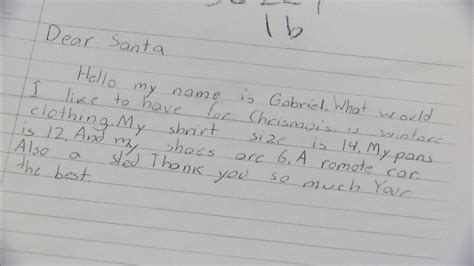 16
Dear Santa
Hello my name is Gabriel. What would
I like to have for Chrismais is wintore
clothing. My shrirt size is 14. My pans
is 12. And my shoes are 6. A romote car.
Also a sled Thank you so much. Your
the best.